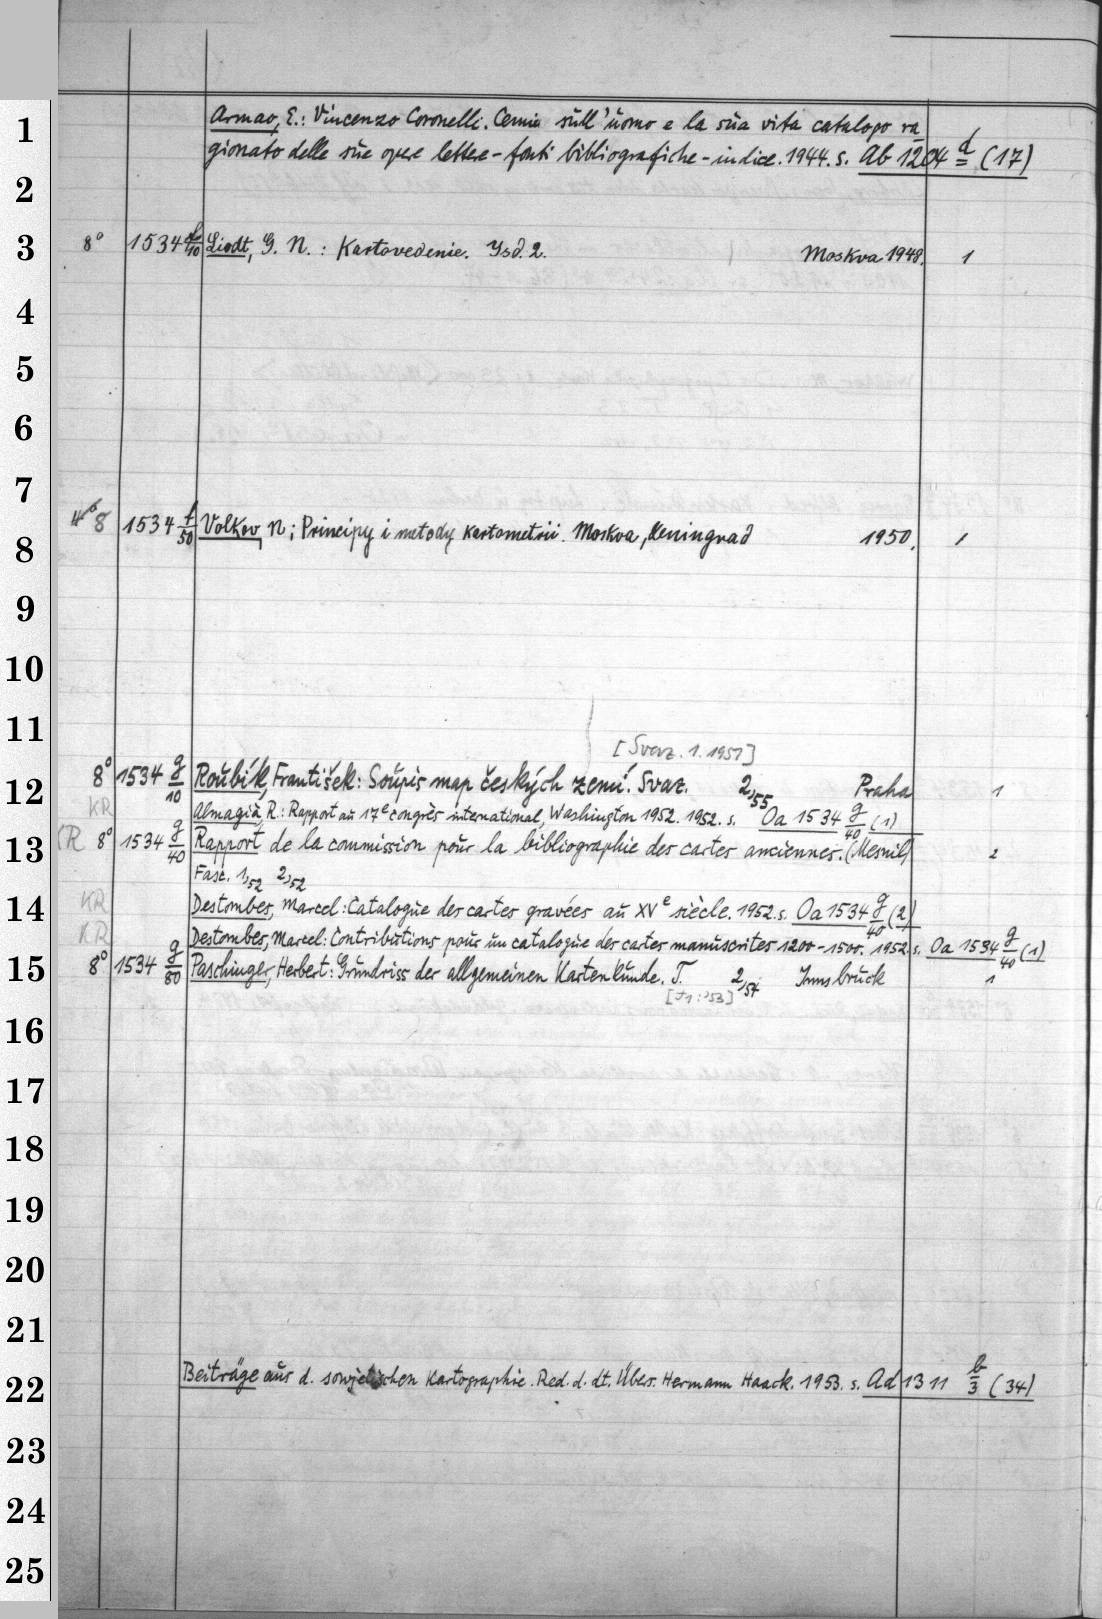 1
Armao, E.: Vincenzo Coronelli. Cenni sull'uomo e la sua vita catalogo ra
gionato delle sue opere lettere - fonti bibliografiche - indice. 1944. s. Ab 1204 d (17)
2
3 8° 1534 f/10 Liodt, G. N. : Kartovedenie. Izd. 2. Moskva 1948. 1
4
5
6
7
8 8 1534 f/50 Volkov, N; Principy i metody kartometrii. Moskva, Leningrad 1950. 1
9
10
11
[Svaz. 1. 1951]
12 8° 1534 g/10 Roubík, František: Soupis map českých zemí. Svaz. 2,55 Praha 1
KR Almagià, R.: Rapport au 17e congrès international, Washington 1952. 1952. s. Oa 1534 g/40 (1)
13 KR 8° 1534 g/40 Rapport de la commission pour la bibliographie des cartes anciennes. (Mesnil) 2
Fasc. 1,52 2,52
14 KR Destombes, Marcel: Catalogue des cartes gravées au XVe siècle. 1952. s. Oa 1534 g/40 (2)
KR Destombes, Marcel: Contributions pour un catalogue des cartes manuscrites 1200-1500. 1952. s. Oa 1534 g/40 (1)
15 8° 1534 g/80 Paschinger, Herbert: Grundriss der allgemeinen Kartenkunde. T. 2,54 Innsbruck 1
[T1: '53]
16
17
18
19
20
21
22 Beiträge aus d. sowjetischen Kartographie. Red. d. dt. Übers. Hermann Haack. 1953. s. Ad 1311 b/3 (34)
23
24
25